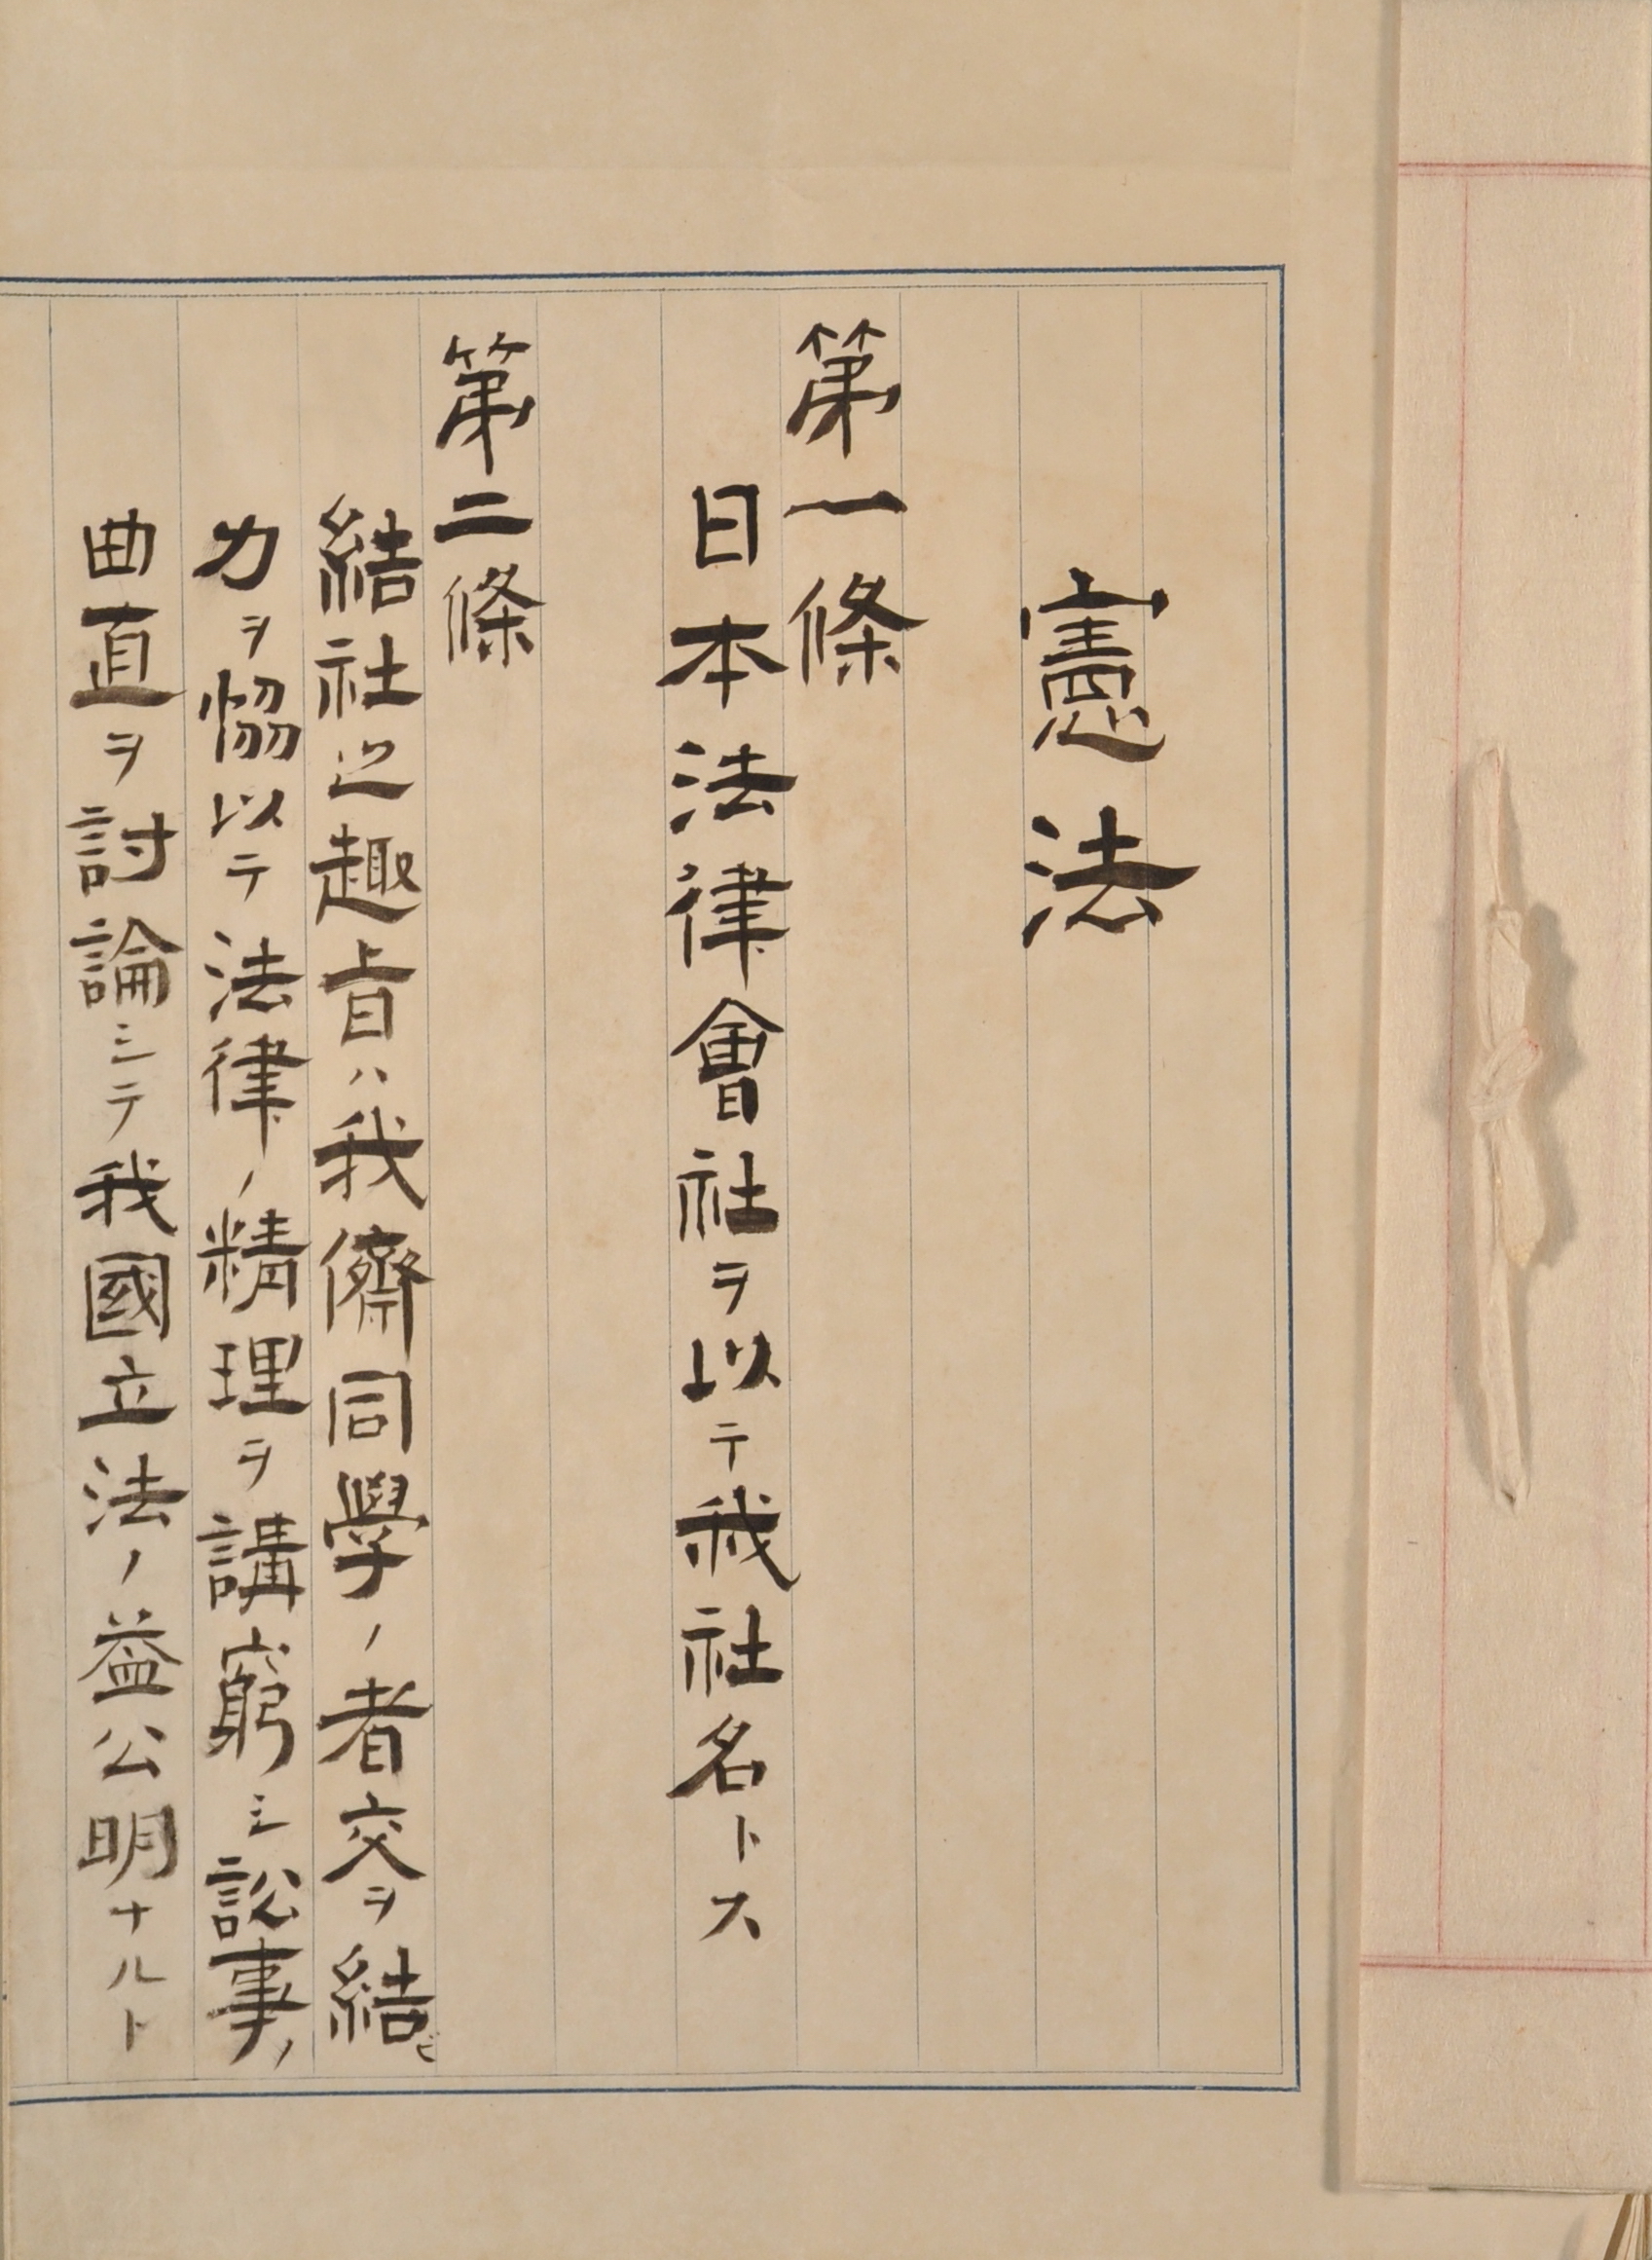 憲法
第一條
日本法律會社ヲ以テ我社名トス
第二條
結社之趣旨ハ我儕同學ノ者交ヲ結ビ
力ヲ恊以テ法律ノ精理ヲ講窮シ訟事ノ
曲直ヲ討論シテ我國立法ノ益公明ナルト